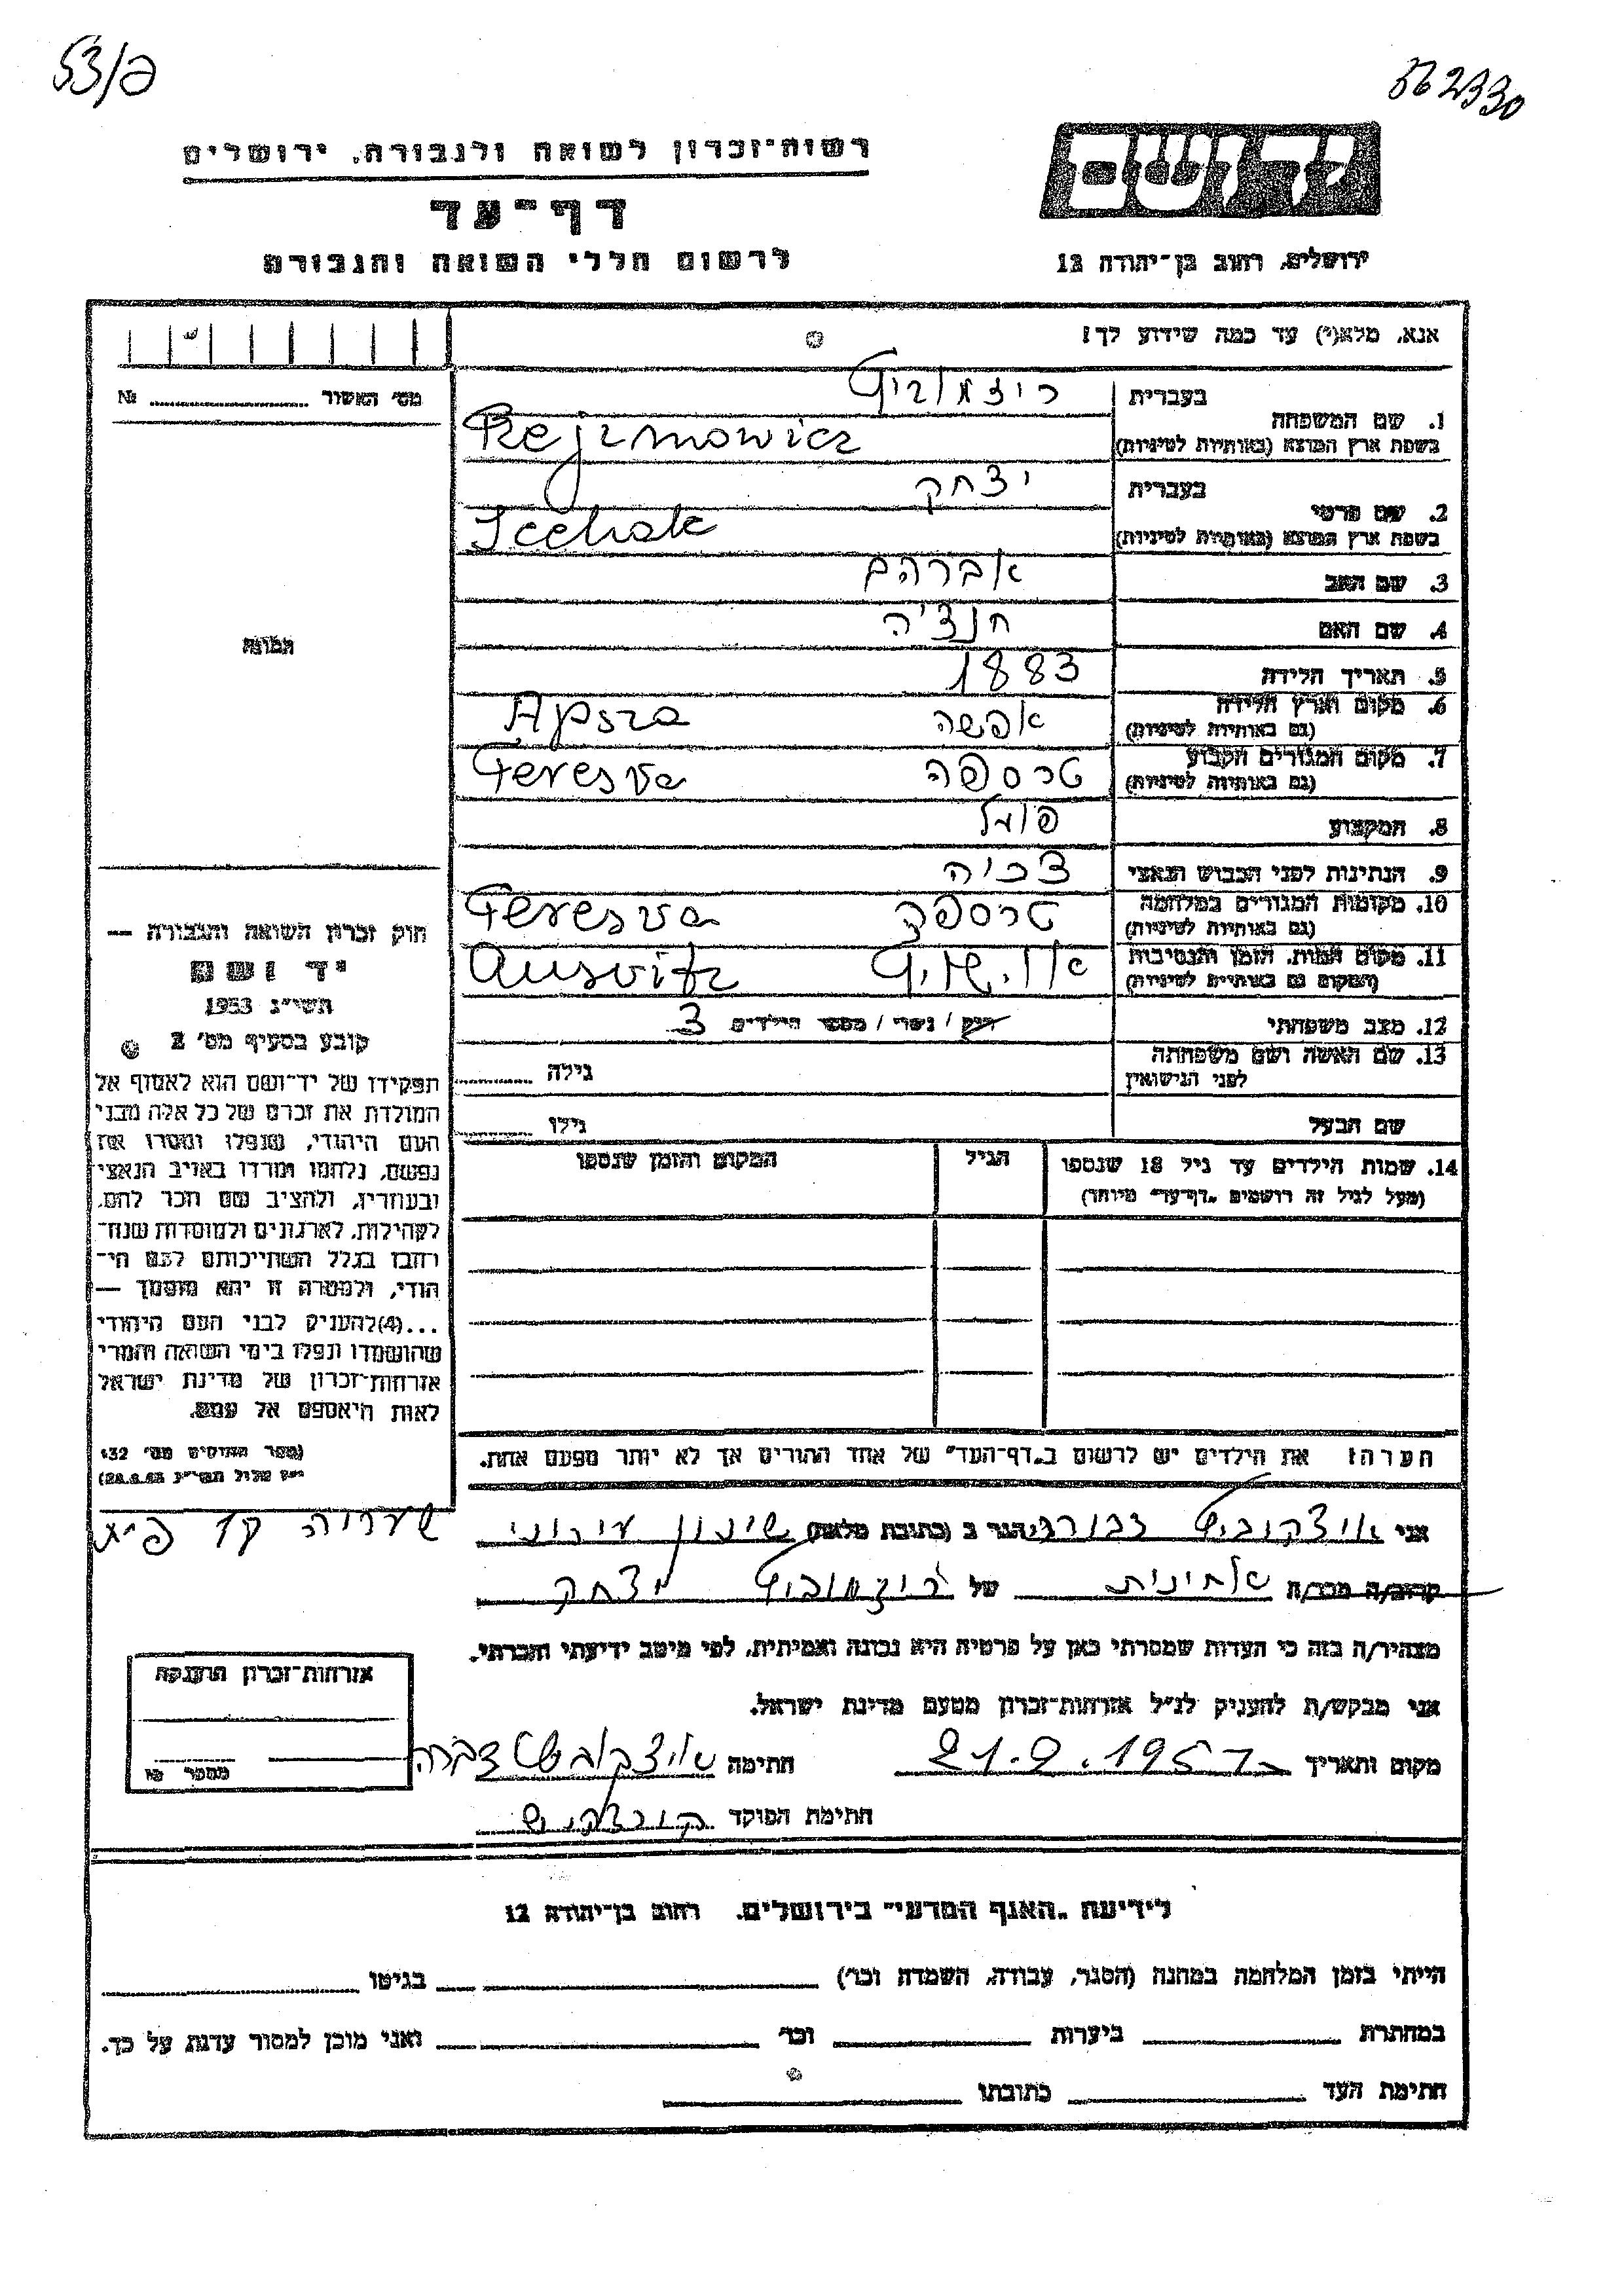 53/פ
562330
רשות-זכרון לשואה ולגבורה, ירושלים
דף-עד
לרשום חללי השואה והגבורה
יד ושם
ירושלים, רחוב בן-יהודה 12
אנא, מלא(י) עד כמה שידוע לך!
מס' האשור № 
תמונה
1. שם המשפחה
בעברית
ריזמוביץ
בשפת ארץ המוצא (באותיות לטיניות)
Rejzmowicz
2. שם פרטי
בעברית
יצחק
בשפת ארץ המוצא (באותיות לטיניות)
Icchak
3. שם האב
אברהם
4. שם האם
חנצ'ה
5. תאריך הלידה
1883
6. מקום וארץ הלידה
(גם באותיות לטיניות)
אפשה Apsza
7. מקום המגורים הקבוע
(גם באותיות לטיניות)
טרספה Teresva
8. המקצוע
פועל
9. הנתינות לפני הכבוש הנאצי
צכיה
10. מקומות המגורים במלחמה
(גם באותיות לטיניות)
טרספה Teresva
11. מקום המות, הזמן והנסיבות
(המקום גם באותיות לטיניות)
אושויץ Ausvitz
12. מצב משפחתי
רווק / נשוי / מספר הילדים 3
13. שם האשה ושם משפחתה
לפני הנישואין
גילה
שם הבעל
גילו
14. שמות הילדים עד גיל 18 שנספו
(מעל לגיל זה רושמים "דף-עד" מיוחד)
הגיל
המקום והזמן שנספו
חוק זכרון השואה והגבורה —
יד ושם
תשי"ג 1953
קובע בסעיף מס' 2
תפקידו של יד-ושם הוא לאסוף אל
המולדת את זכרם של כל אלה מבני
העם היהודי, שנפלו ומסרו את
נפשם, נלחמו ומרדו באויב הנאצי
ובעוזריו, ולהציב שם וזכר להם,
לקהילות, לארגונים ולמוסדות שנח-
רחבו בגלל השתייכותם לעם הי-
הודי, ולמטרה זו יהא מוסמך —
...(4) להעניק לבני העם היהודי
שהושמדו ונפלו בימי השואה והמרי
אזרחות-זכרון של מדינת ישראל
לאות היאספם אל עמם.
(ספר החוקים מס' 132,
י"ז אלול תשי"ג 28.8.53)
הערה: את הילדים יש לרשום ב"דף-העד" של אחד ההורים אך לא יותר מפעם אחת.
אני איצקוביץ דבורה הגר ב (כתובת מלאה) שיכון עירוני
קרוב/ה מכר/ה אחינית של ריזמוביץ יצחק
מצהיר/ה בזה כי העדות שמסרתי כאן על פרטיה היא נכונה ואמיתית, לפי מיטב ידיעתי והכרתי.
אני מבקש/ת להעניק לנ"ל אזרחות-זכרון מטעם מדינת ישראל.
מקום ותאריך 21.2.1957 חתימה איצקוביץ דבורה
חתימת הפוקד
אזרחות-זכרון הוענקה
מספר
לידיעת "האגף המדעי" בירושלים, רחוב בן-יהודה 12
הייתי בזמן המלחמה במחנה (הסגר, עבודה, השמדה וכו') בגיטו
במחתרת ביערות וכו' ואני מוכן למסור עדות על כך.
חתימת העד כתובתו